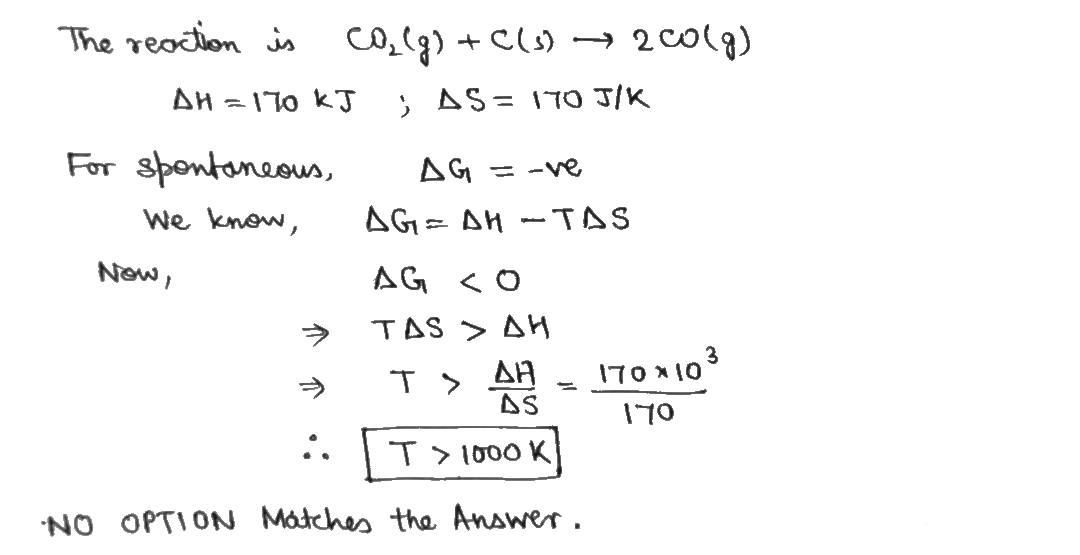 The reaction is CO₂(g) + C(s) → 2CO(g)
ΔH = 170 kJ ; ΔS = 170 J/K
For spontaneous, ΔG = -ve
We know, ΔG = ΔH - TΔS
Now, ΔG < 0
⇒ TΔS > ΔH
⇒ T > ΔH/ΔS = 170 × 10³/170
∴ T > 1000 K
NO OPTION Matches the Answer.